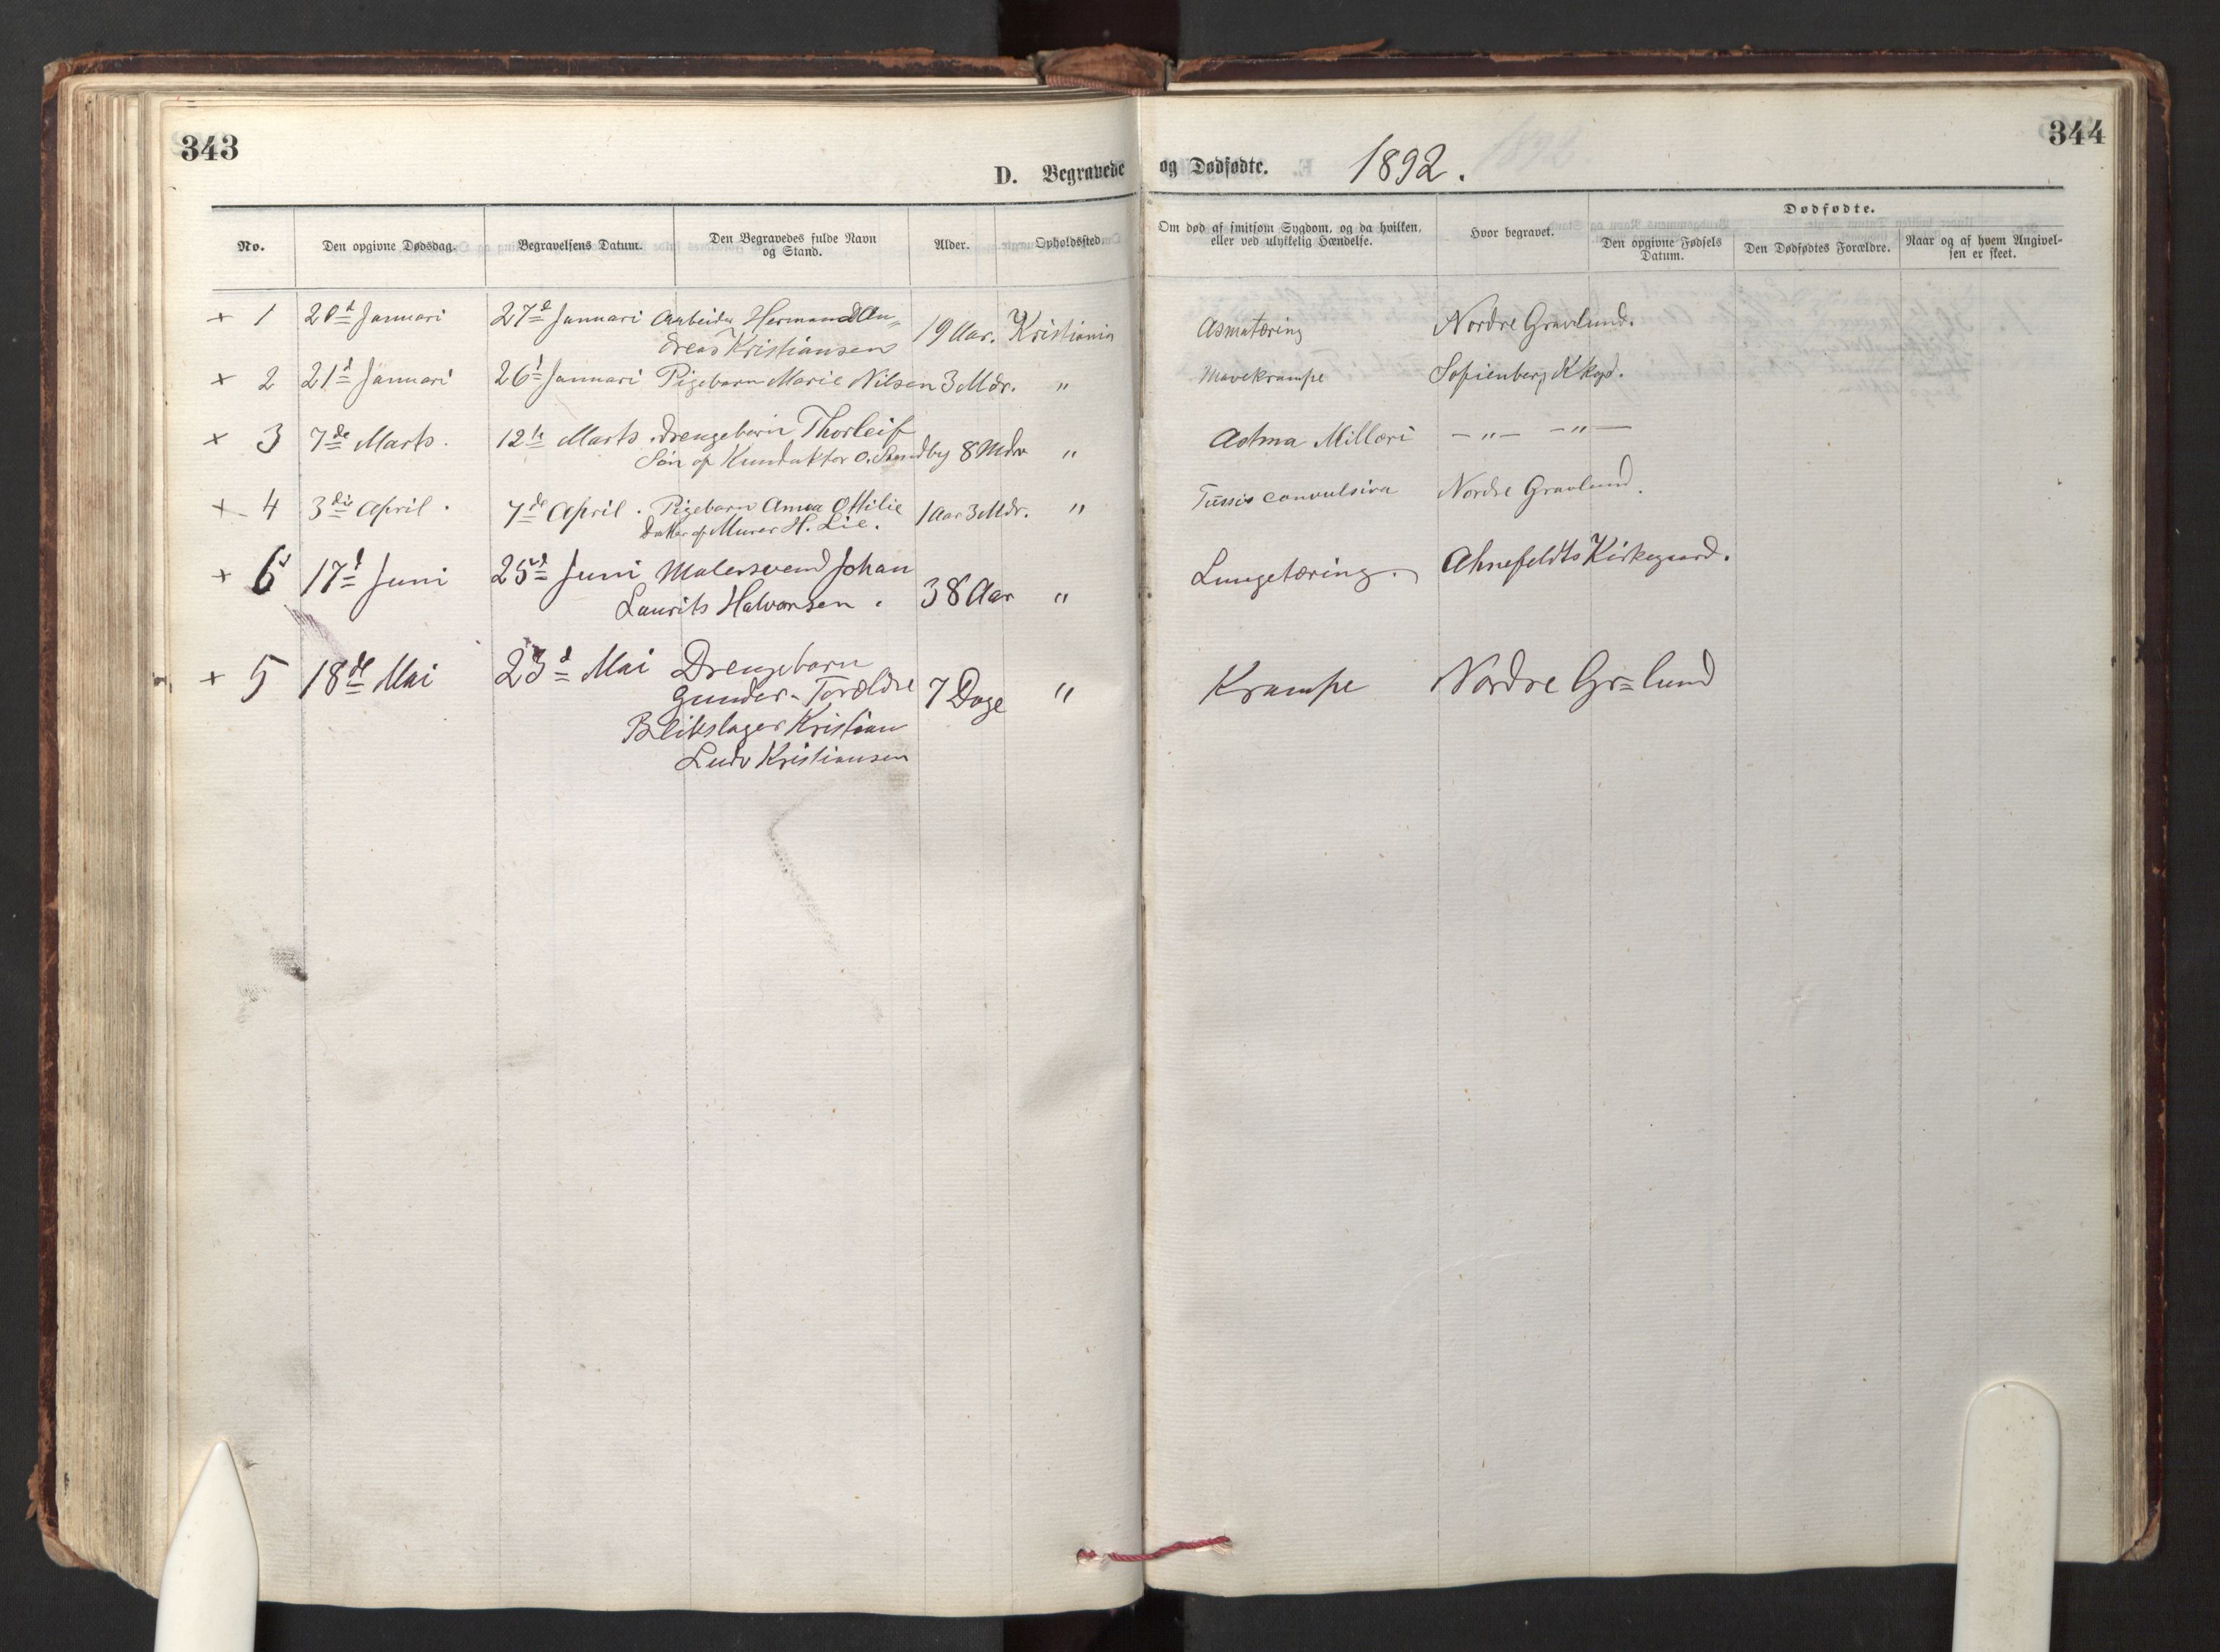 343
344
D. Begravede og Dødfødte. 1892.
No. Den opgivne Dødsdag. Begravelsens Datum. Den Begravedes fulde Navn og Stand. Alder. Opholdssted Om død af smitsom Sygdom, og da hvilken, eller ved ulykkelig Hændelse. Hvor begravet. Dødfødte. Den opgivne Fødsels Datum. Den Dødfødtes Forældre. Naar og af hvem Angivelsen er skeet.
+ 1 20d Januari 27d Januari Arbeider Hermand An= 19 Aar. Kristiania Asmatæring Nordre Gravlund.
dreas Kristiansen
+ 2 21d Januari 26d Januari Pigebarn Marie Nilsen 3 Mdr. " Mavekrampe Sofienberg Kkgd.
+ 3 7de Marts. 12te Marts. Drengebarn Thorleif
Søn af Kunduktør O. Sandby 8 Mdr " Astma Millari —"— —"—
+ 4 3die April. 7de April. Pigebarn Anna Ottilie 1 Aar 3 Mdr. " Tussis convulsiva Nordre Gravlund.
Datter af Murer H. Lie.
+ 6 17d Juni 25d Juni Malersvend Johan Lungetæring. Ahnefeldts Kirkegaard.
Laurits Halvorsen. 38 Aar "
+ 5 18de Mai 23d Mai Drengebarn
Gunder - Forældre 7 Dage " Krampe Nordre Gr=lund
Blikslager Kristian
Ludv Kristiansen